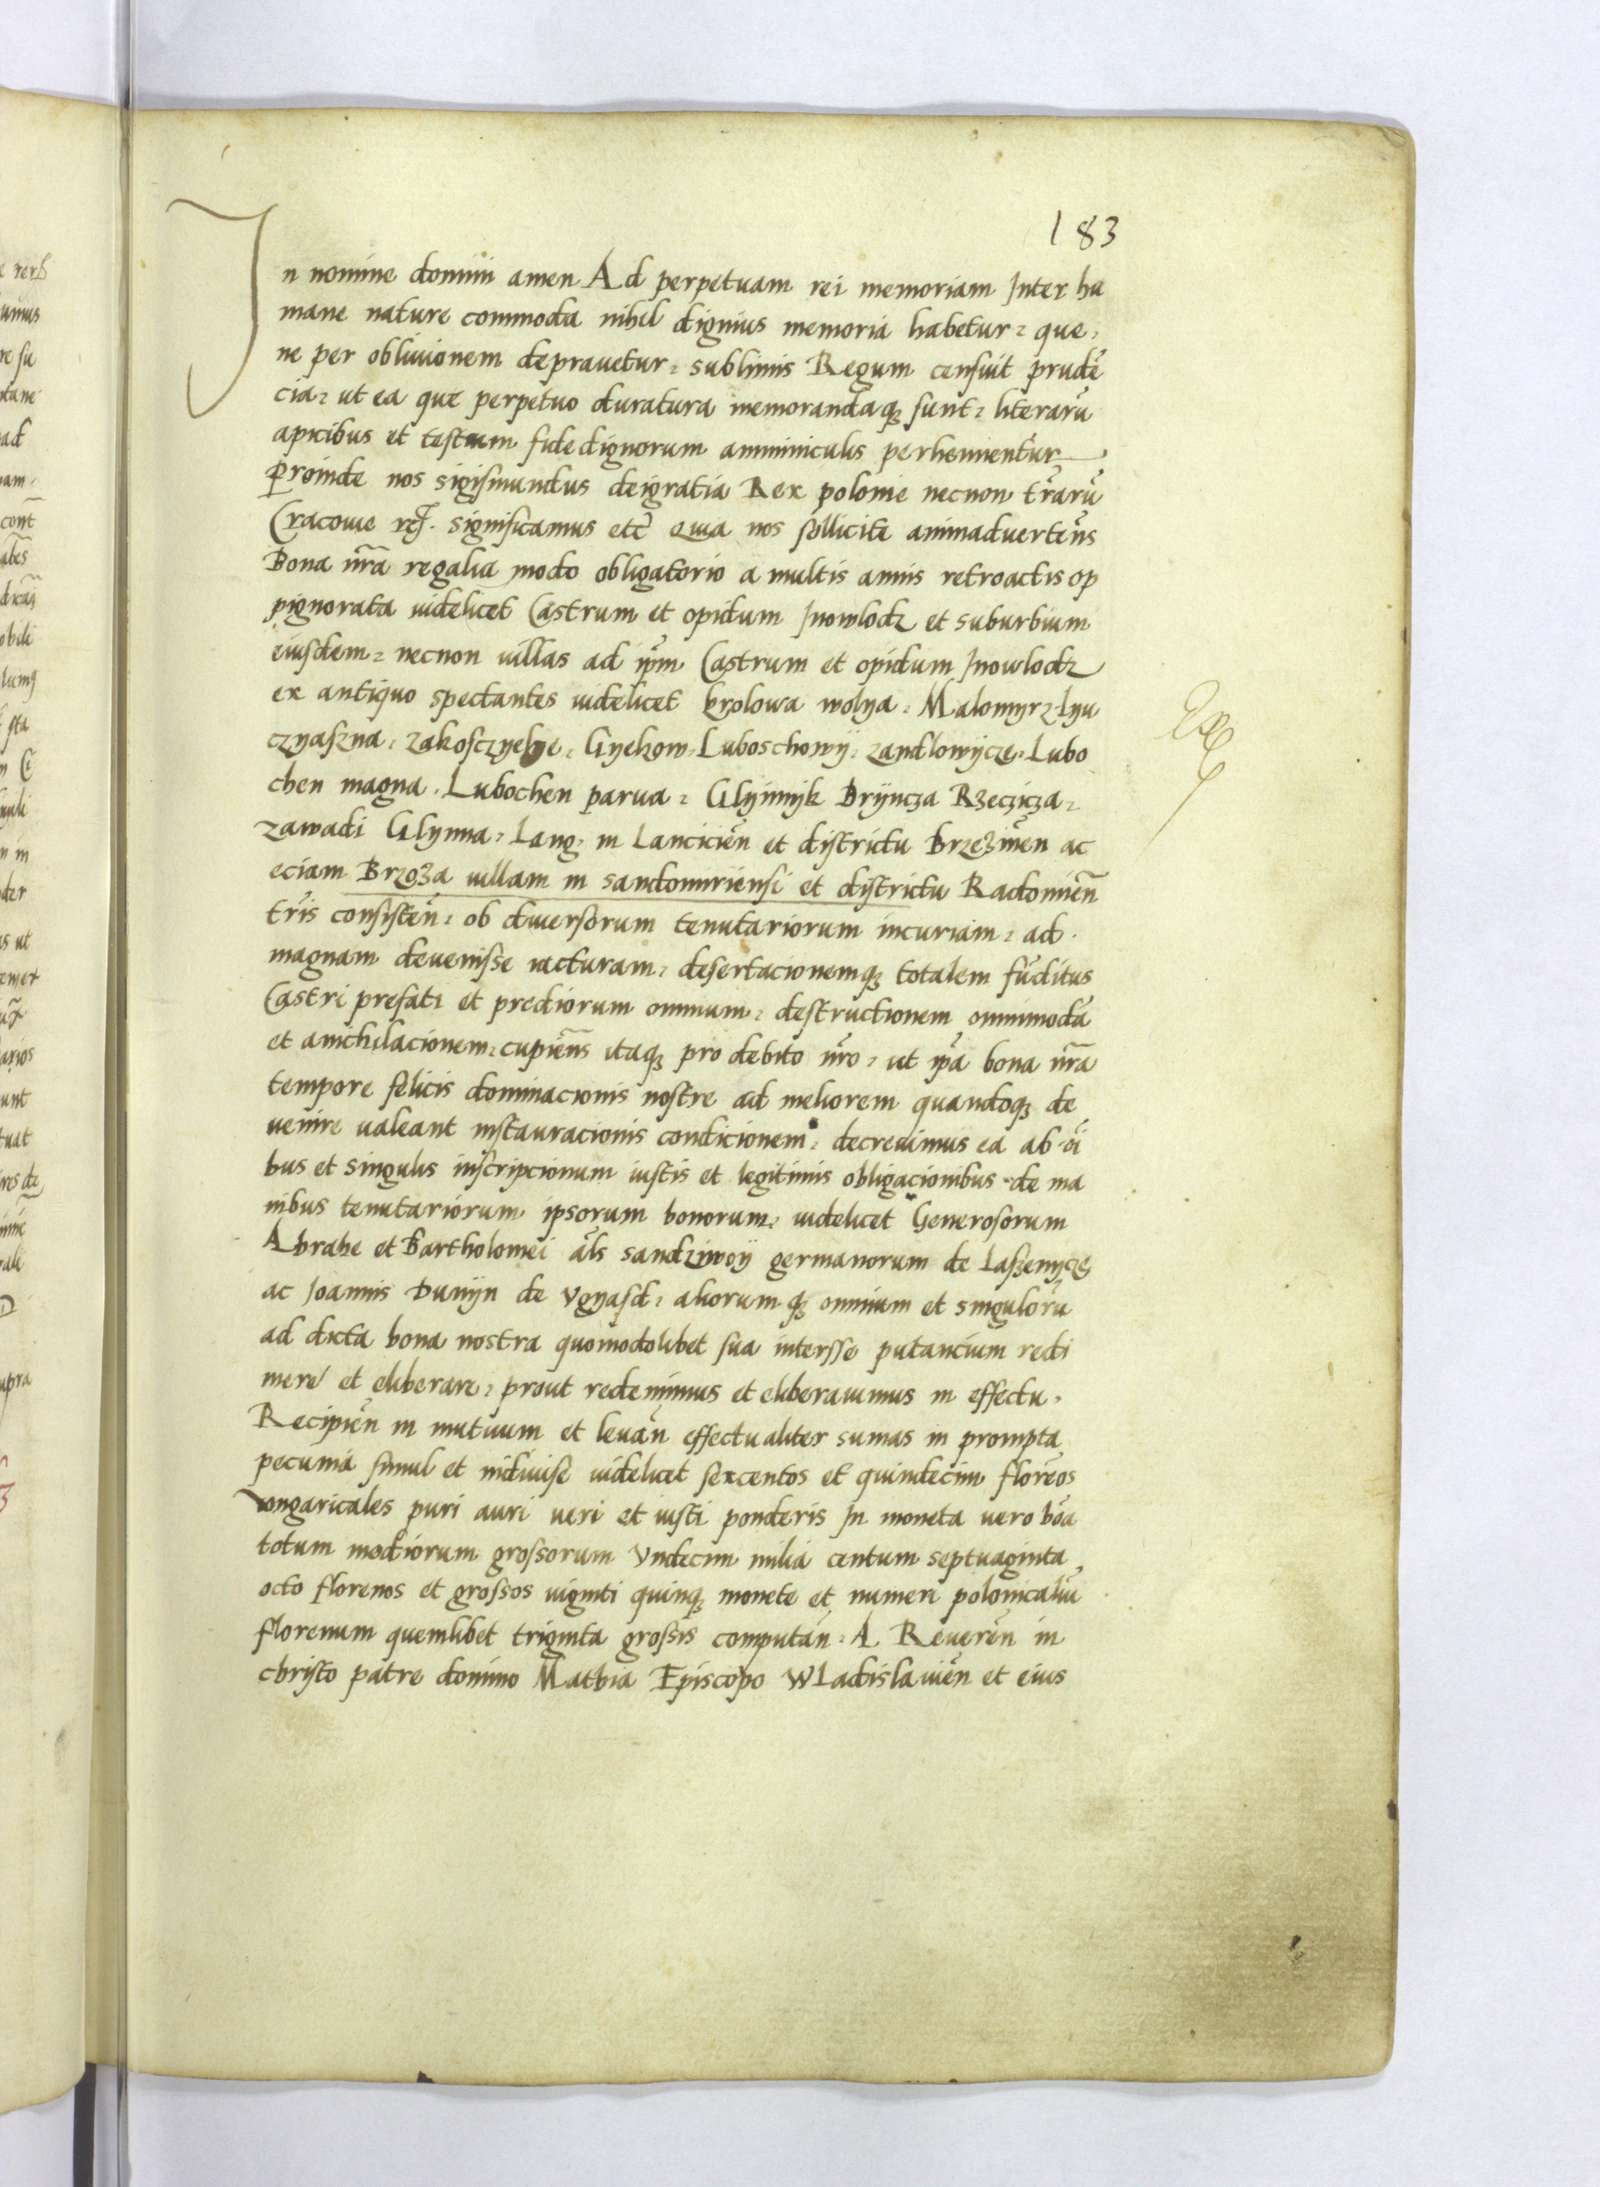 183
In nomine domini amen Ad perpetuam rei memoriam Inter hu
mane nature commoda nihil dignius memoria habetur, que,
ne per oblivionem depravetur, sublimis Regum censuit prudē
cia, ut ea que perpetuo duratura memorandaqȝ sunt, literarū
apicibus et testium fidedignorum amminiculis perhennentur
Proinde nos sigismundus dei gratia Rex polonie necnon tr̄arū
Cracovie significamus etc̄ Quia nos sollicite animadvertēns
Bona nr̄a regalia modo obligatorio a multis annis retroactis op
pignorata videlicet Castrum et opidum Jnowlodz et suburbium
eiusdem, necnon villas ad ip̄m Castrum et opidum Jnowlodz
ex antiquo spectantes videlicet krolowa wolya, Malomyrz lyu
czyaszna, zakosczyelye, Gyelzow, Luboschowÿ, zandlowÿcze, Lubo
chen magna, Lubochen parva, Glÿnnyk Brÿncza Rzeczicza,
zawadi Glynna, Lang, in Lancicieñ et districtu Brzezineñ ac
eciam Brzoza villam in sandomiriensi et districtu Radomieñ
tr̄is consisteñ, ob diversorum tenutariorum incuriam, ad
magnam devenisse iacturam, desertacionemqȝ totalem fūditus
Castri prefati et prediorum omnium, destructionem omnimodā
et anichilacionem, cupieñs itaqȝ pro debito nr̄o, ut ip̄a bona nr̄a
tempore felicis dominacionis nostre ad meliorem quandoqȝ de
venire valeant instauracionis condicionem, decrevimus ea ab oī
bus et singulis inscripcionum iustis et legitimis obligacionibus de ma
nibus tenutariorum ipsorum bonorum, videlicet Generosorum
Abrahe et Bartholomei al̄s sandziwoÿ germanorum de Laszenycze
ac Joannis Dunÿn de Vgyasd, aliorumqȝ omnium et singulorū
ad dicta bona nostra quomodolibet sua intersse putancium redi
mere et eliberare, prout redemimus et eliberavimus in effectu,
Recipieñ in mutuum et levañ effectualiter sumas in prompta
pecunia simul et indivise videlicet sexcentos et quindecim floreños
vngaricales puri auri veri et iusti ponderis In moneta vero bōa
totum mediorum grossorum Vndecim milia centum septuaginta
octo florenos et grossos viginti quinqȝ monete et numeri polonicaliū
florenum quemlibet triginta grossis computañ, A Revereñ in
christo patre domino Mathia Episcopo Wladislavieñ et eius